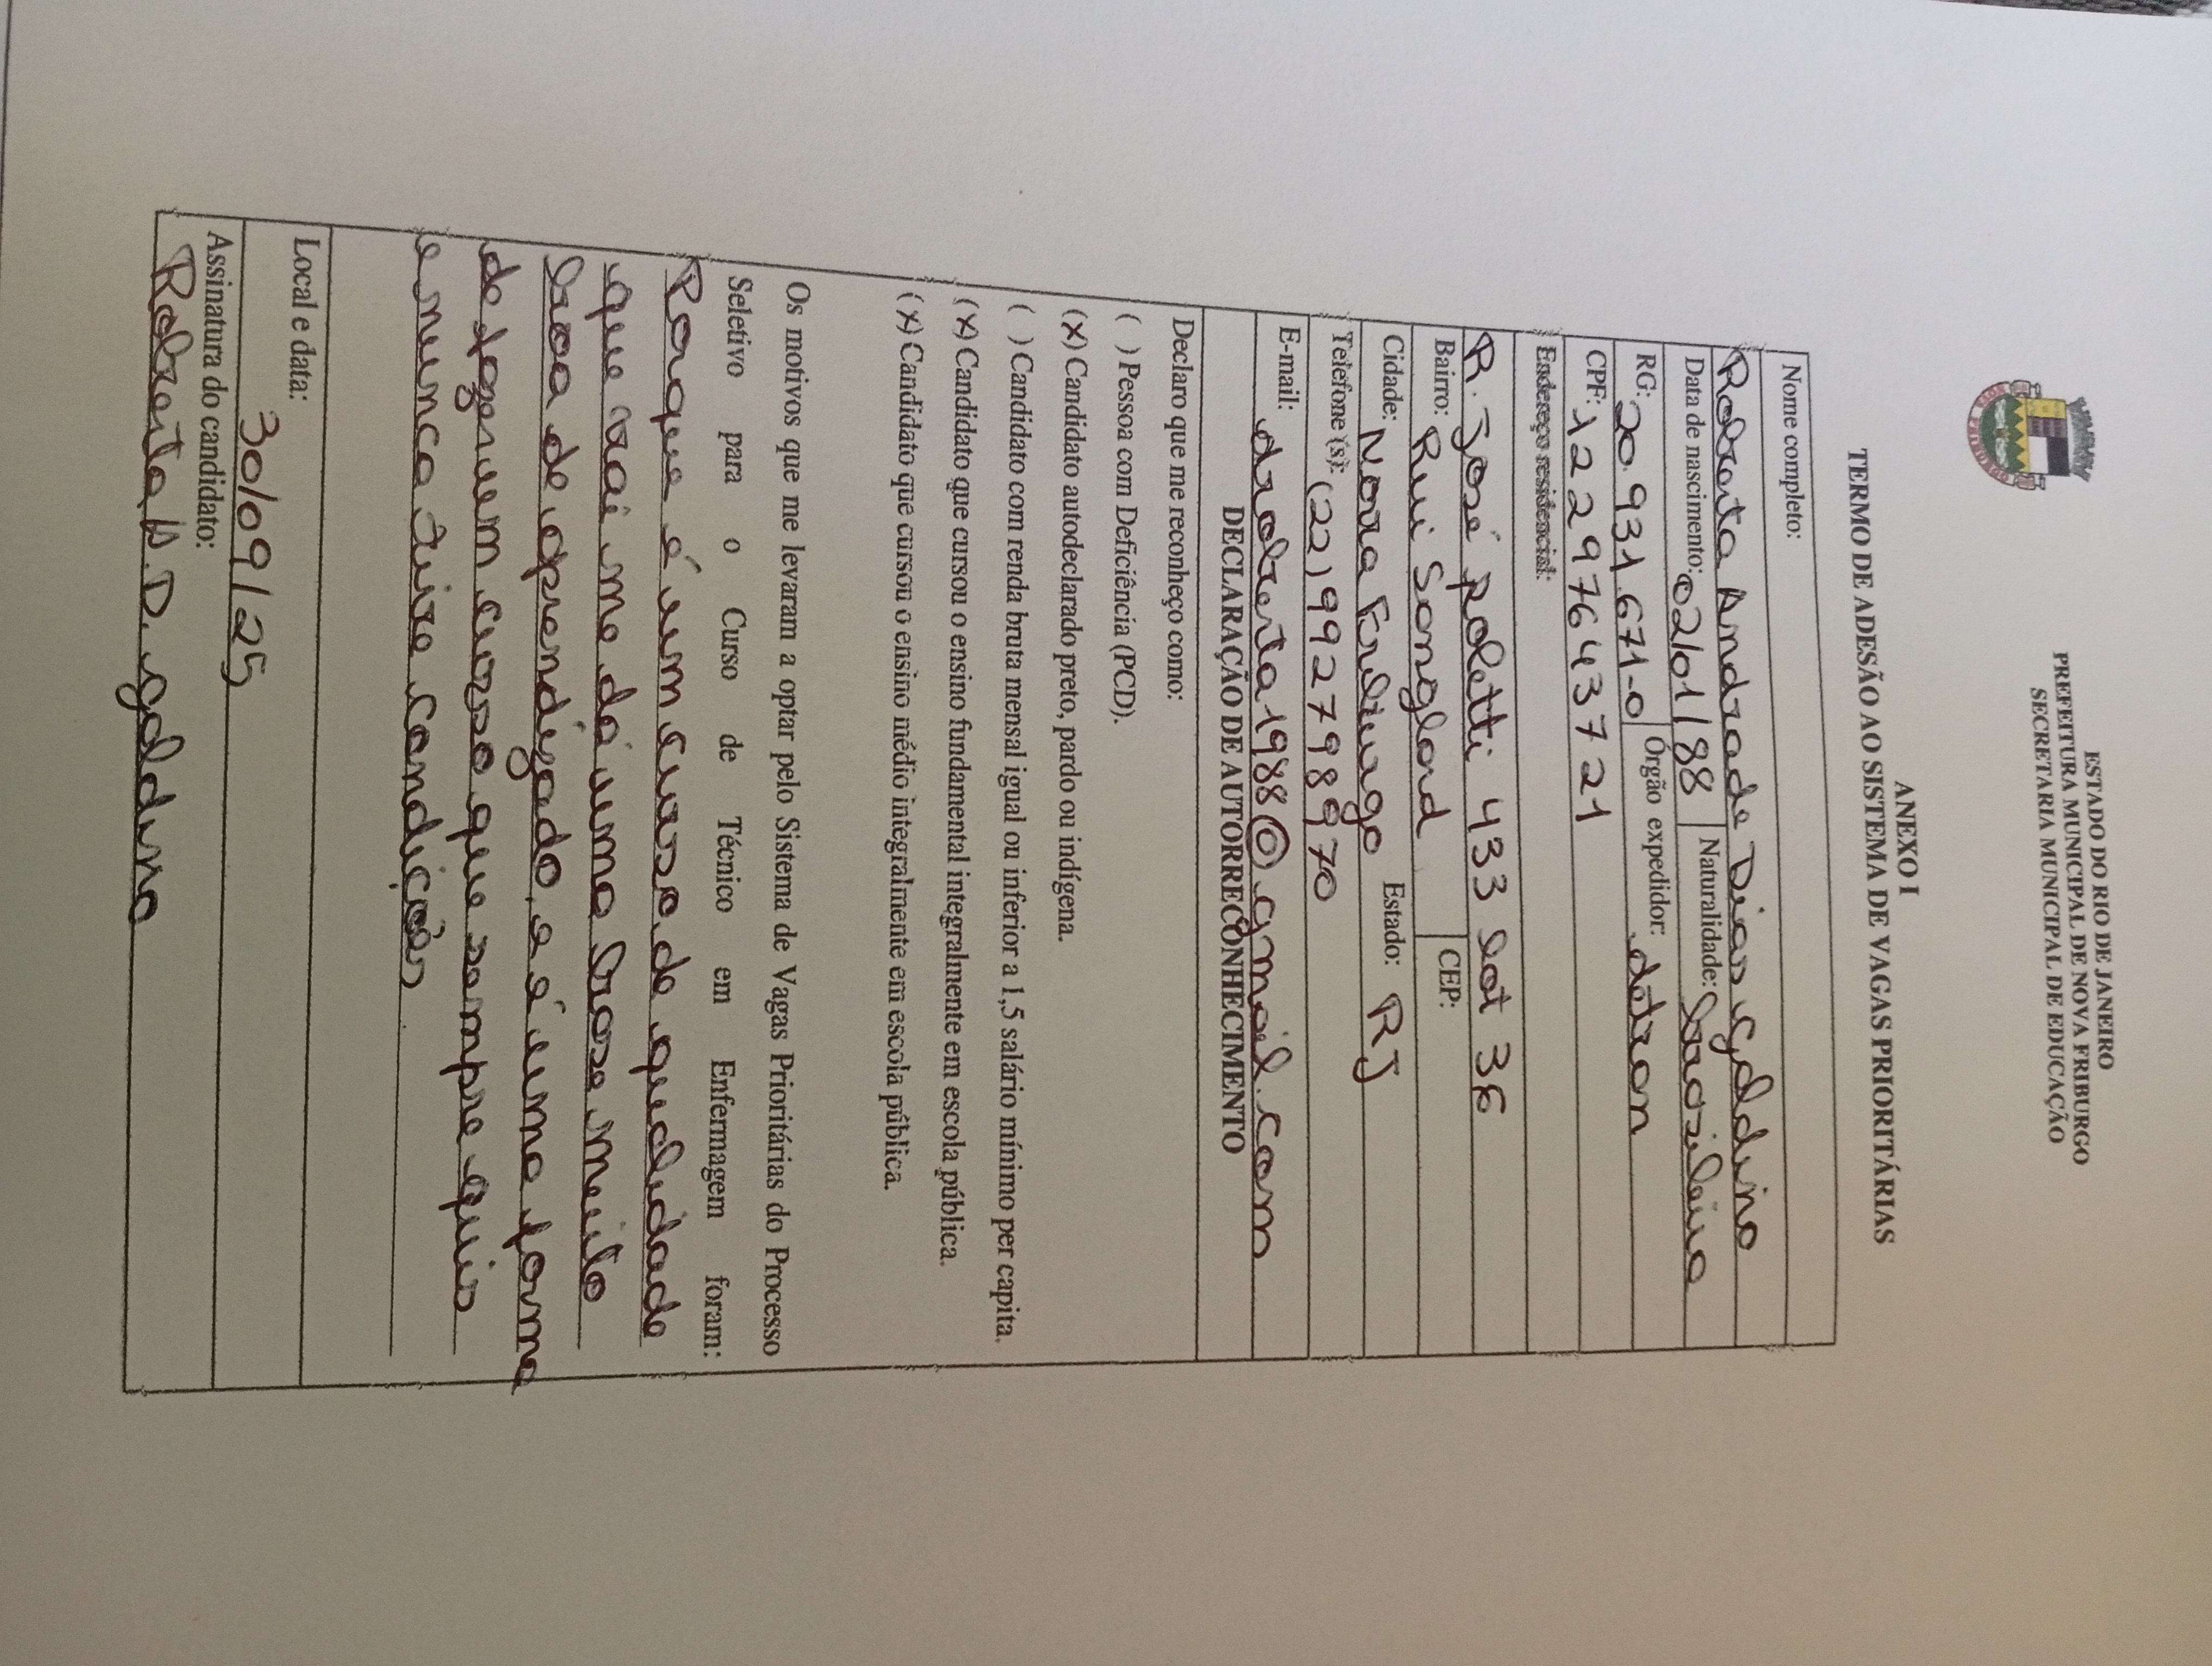 ESTADO DO RIO DE JANEIRO
PREFEITURA MUNICIPAL DE NOVA FRIBURGO
SECRETARIA MUNICIPAL DE EDUCAÇÃO
ANEXO I
TERMO DE ADESÃO AO SISTEMA DE VAGAS PRIORITÁRIAS
Nome completo:
Roberta Andrade Dias galdino
Data de nascimento: 02/01/88 Naturalidade: brasileira
RG: 20.931.671-0 Órgão expedidor: detran
CPF: 12229764 37 21
Endereço residencial:
R. José poletti 433 lot 36
Bairro: Rui Sanglard CEP:
Cidade: Nova Friburgo Estado: RJ
Telefone (s): (22) 992798970
E-mail: droberta1988@gmail.com
DECLARAÇÃO DE AUTORRECONHECIMENTO
Declaro que me reconheço como:
( ) Pessoa com Deficiência (PCD).
(x) Candidato autodeclarado preto, pardo ou indígena.
( ) Candidato com renda bruta mensal igual ou inferior a 1,5 salário mínimo per capita.
(x) Candidato que cursou o ensino fundamental integralmente em escola pública.
(x) Candidato que cursou o ensino médio integralmente em escola pública.
Os motivos que me levaram a optar pelo Sistema de Vagas Prioritárias do Processo
Seletivo para o Curso de Técnico em Enfermagem foram:
Porque é um curso de qualidade
que vai me dá uma base muito
boa de aprendizado, e é uma forma
de fazer um curso que sempre quis
e nunca tive condições
Local e data:
30/09/25
Assinatura do candidato:
Roberta A. D. galdino